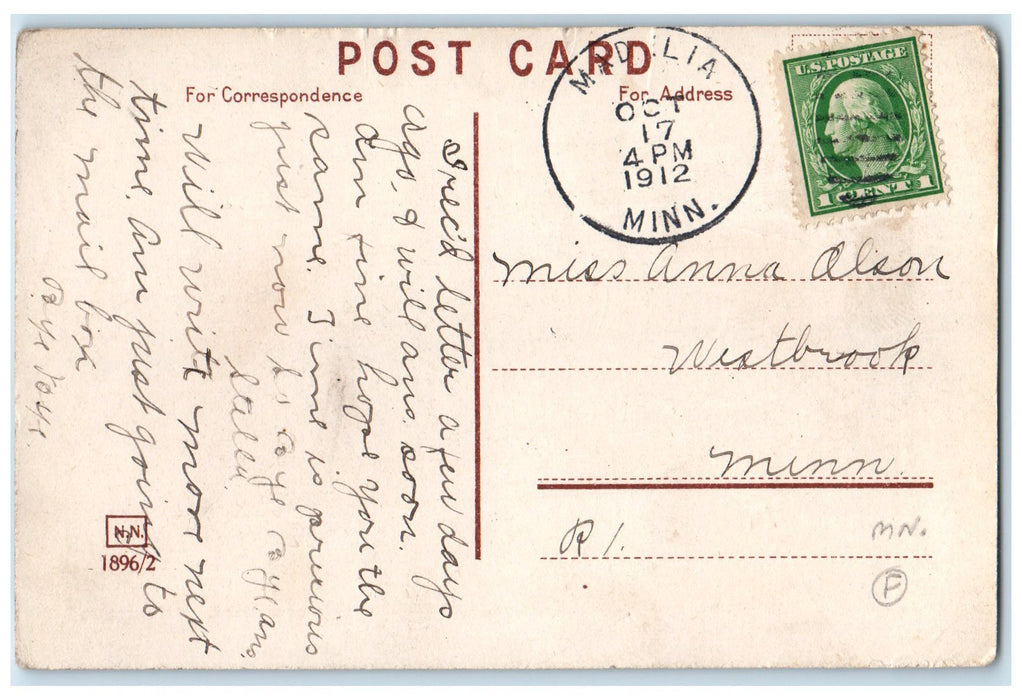 POST CARD
For Correspondence
For Address
MADELIA
OCT
17
4 PM
1912
MINN.
U.S. POSTAGE
1 CENT 1
Miss Anna Olson
Westbrook
Minn.
R 1.
MN.
F
I rec'd letter a few days
ago, & will ans. soon.
Am fine hope you the
same. Time is precious
just now
Will write more next
time. Am just going to
the mail box
N.N.
1896/2